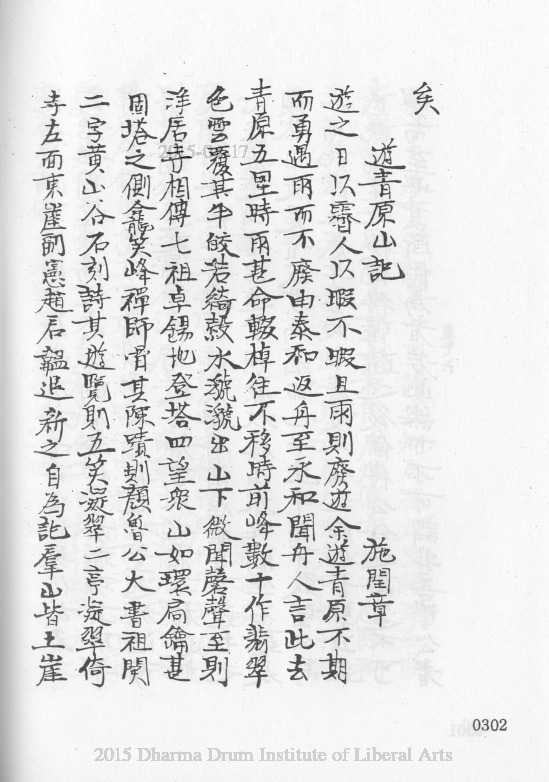 矣
遊青原山記　施閏章
遊之日以霽人以暇不暇且雨則廢遊余遊青原不期
而勇遇雨而不廢由泰和返舟至永和聞舟人言此去
青原五里時雨甚命輟棹往不移時前峰數十作翡翠
色雲覆其半皎若綺縠水㶁㶁出山下微聞磬聲至則
淨居寺相傳七祖卓錫地登塔四望衆山如環扃鑰甚
固塔之側龕笑峰禪師骨其陳蹟則顏魯公大書祖関
二字黃山谷石刻詩其遊覽則五笑凝翠二亭凝翠倚
寺左面東崖副憲趙君韞退新之自為記羣山皆土崖
0302
2015 Dharma Drum Institute of Liberal Arts